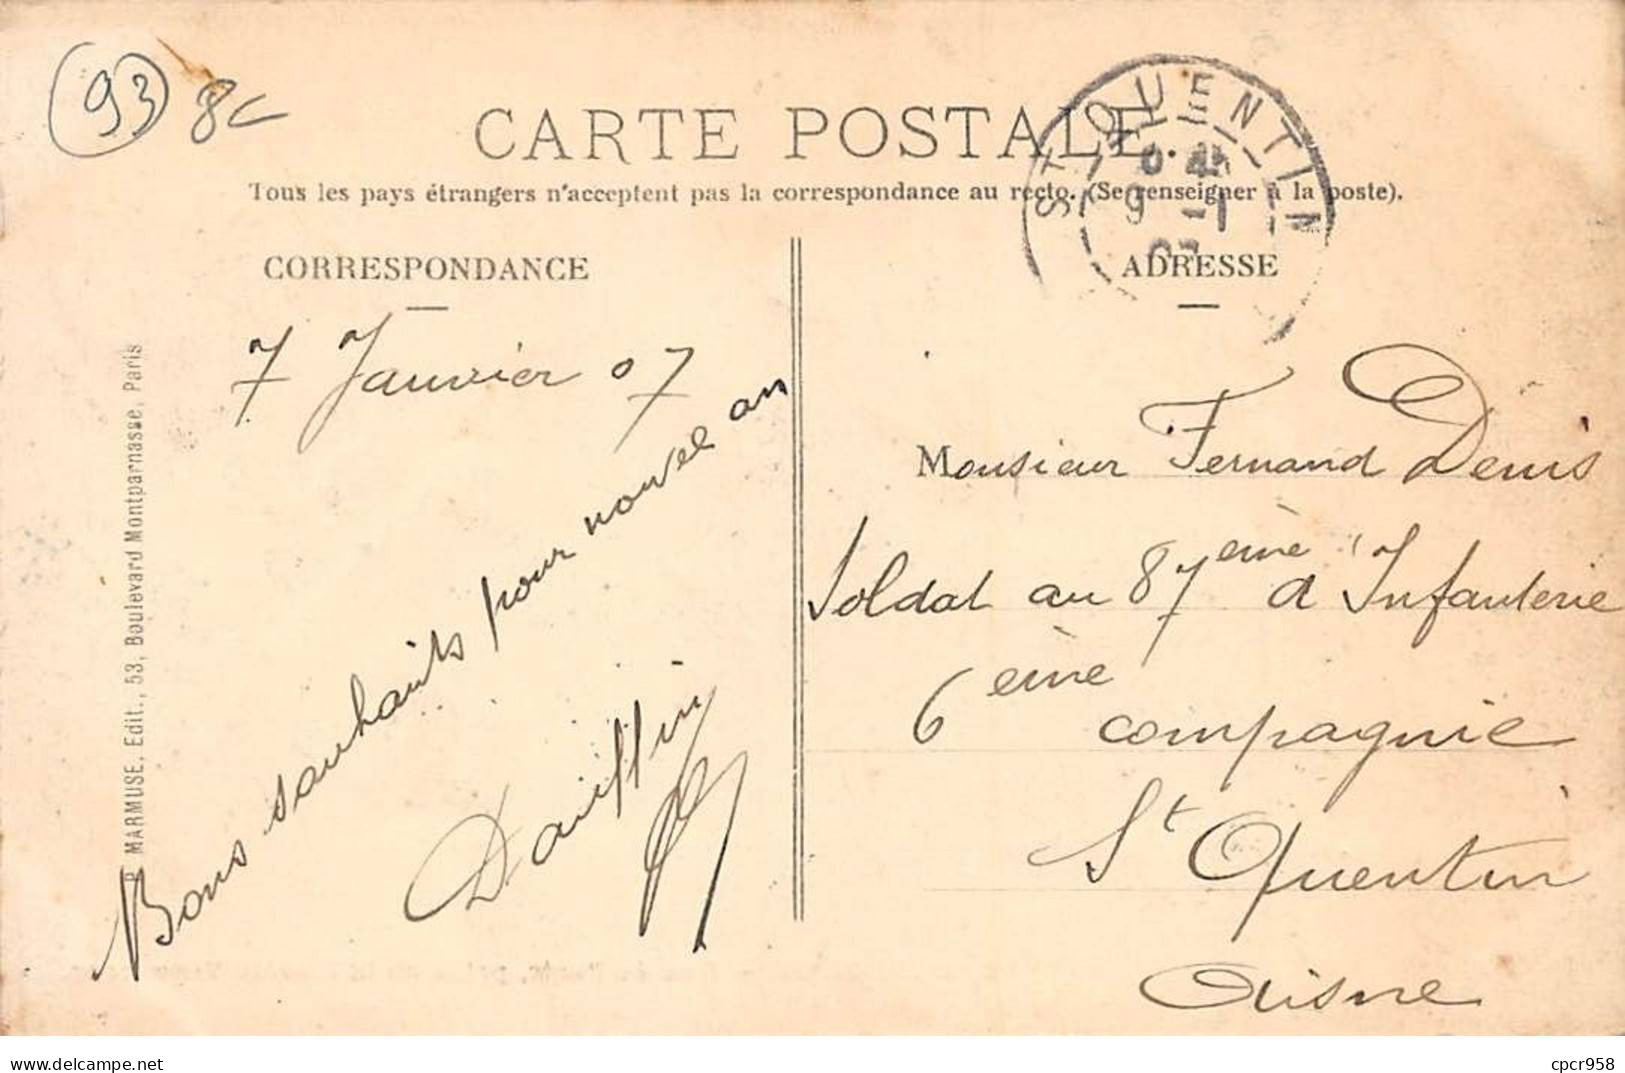 93
8c
CARTE POSTALE.
ST QUENTIN
9 -1
07
Tous les pays étrangers n'acceptent pas la correspondance au recto. (Se renseigner à la poste).
CORRESPONDANCE
ADRESSE
7 Janvier 07
Bons souhaits pour nouvel an
MARMUSE, Edit., 53, Boulevard Montparnasse, Paris
Monsieur Fernand Denis
Soldat au 87ème d'Infanterie
6ème compagnie
St Quentin
Aisne
delcampe.net
cpcr958